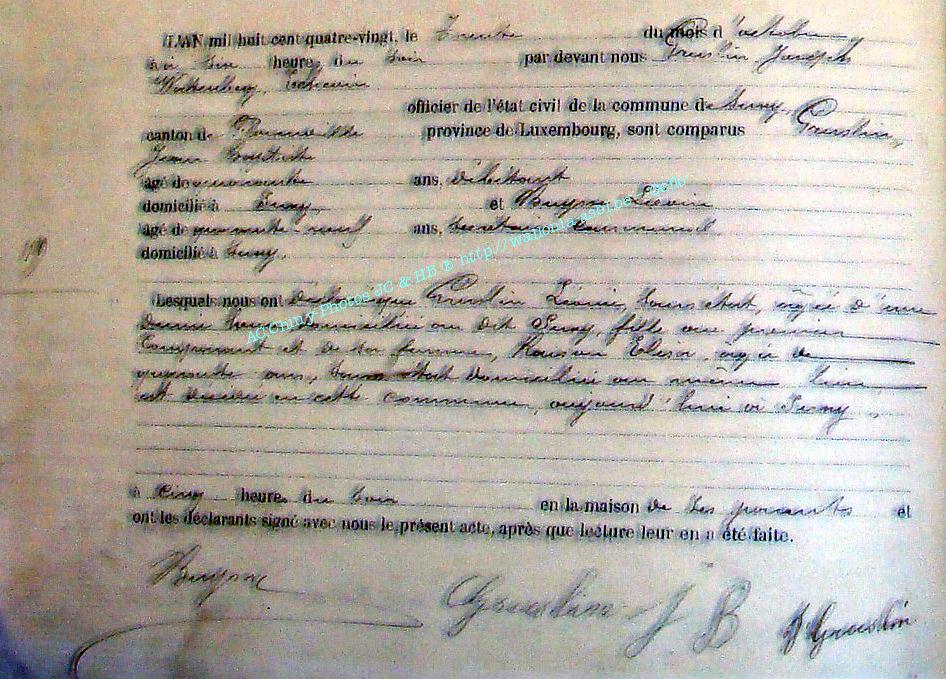 L'AN mil huit cent quatre-vingt, le Trente du mois d'octobre
à six heures du soir par devant nous Goustin Joseph
Echevin
officier de l'état civil de la commune de Suxy,
canton de province de Luxembourg, sont comparus Goustin,
Jean Baptiste
agé de quarante ans, débitant
domicilié à Suxy, et Buysse Liévin
agé de quarante-neuf ans, Secrétaire communal
domicilié à Suxy.
Lesquels nous ont déclaré que Goustin Léonie, sans état, agée d'une
demie heure domiciliée au dit Suxy, fille du premier
Comparant et de sa femme, Elisa, agée de
quarante ans, sans état domiciliée au même lieu
est décédée en cette commune, aujourd'hui à Suxy,
à cinq heures du soir en la maison de ses parents et
ont les déclarants signé avec nous le présent acte, après que lecture leur en a été faite.
Buysse Goustin J B J Goustin
AC Chiny Photos JC & HB @ http://wallonia.asso.